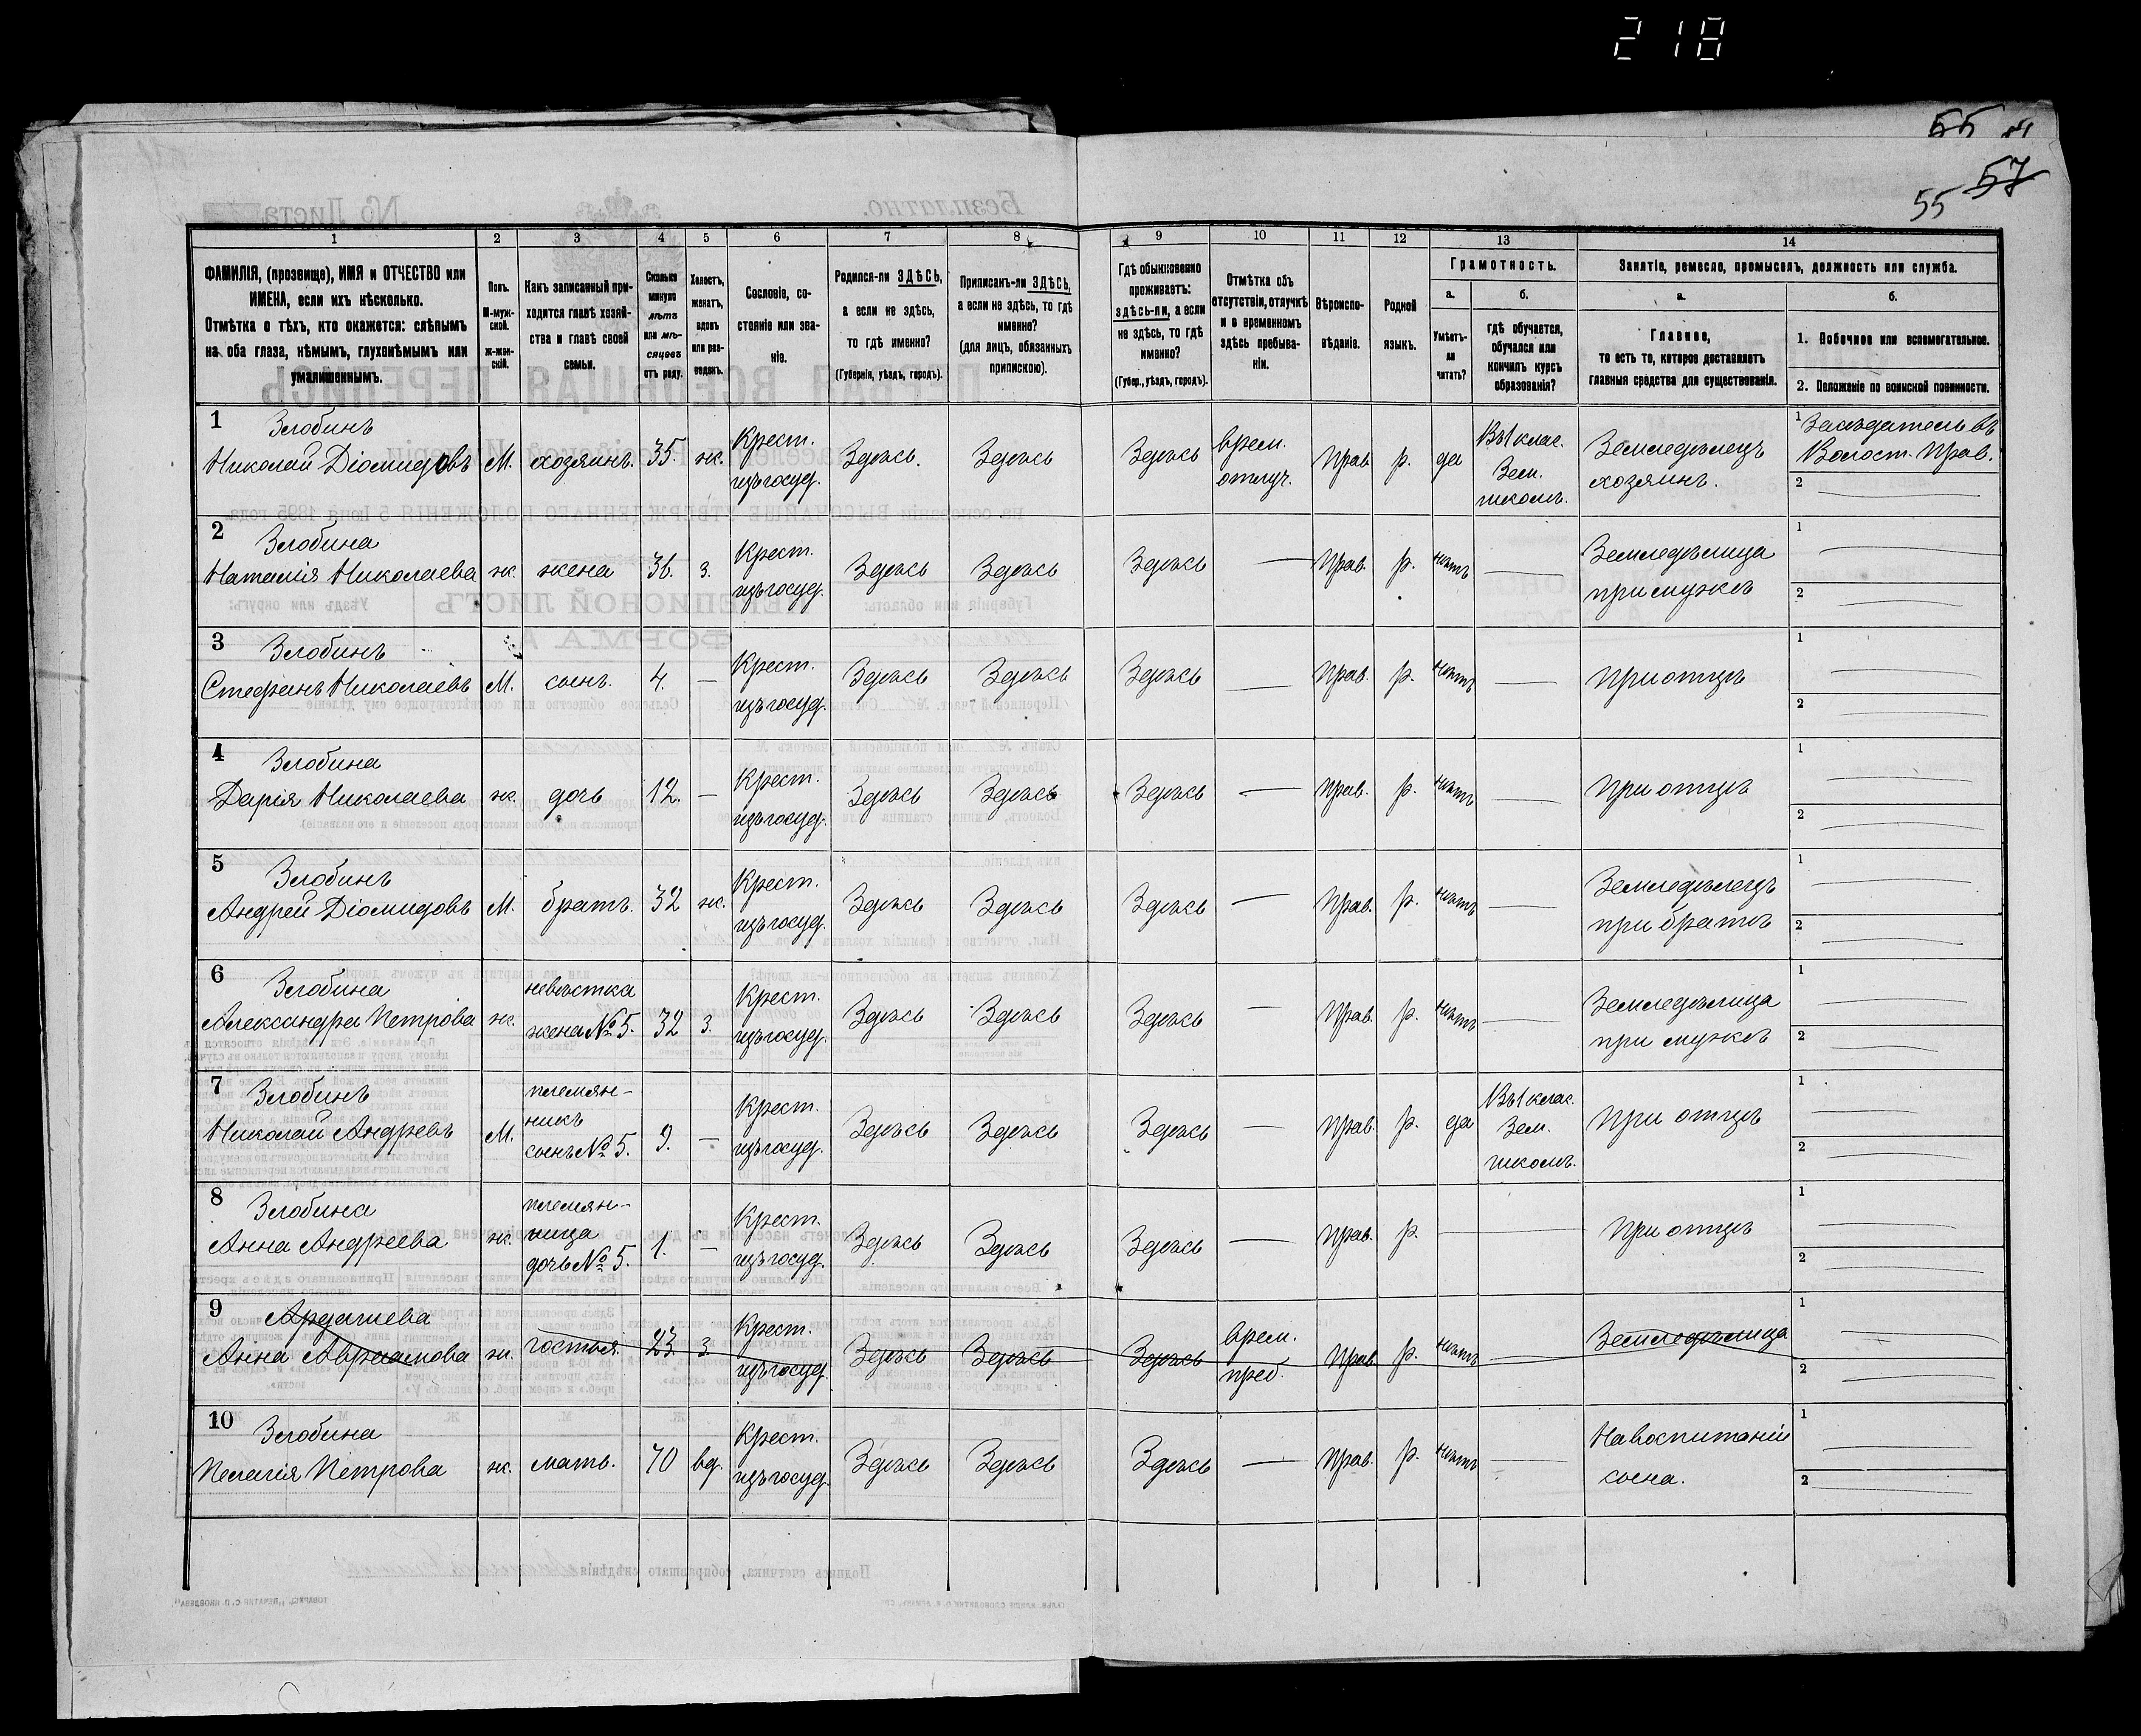 218
55
57
55
1 2 3 4 5 6 7 8 9 10 11 12 13 14
ФАМИЛІЯ, (прозвище), ИМЯ и ОТЧЕСТВО или
ИМЕНА, если ихъ нѣсколько.
Отмѣтка о тѣхъ, кто окажется: слѣпымъ
на оба глаза, нѣмымъ, глухонѣмымъ или
умалишеннымъ.
Полъ.
М-муж-
ской.
Ж-жен-
скій.
Какъ записанный при-
ходится главѣ хозяй-
ства и главѣ своей
семьи.
Сколько
минуло
лѣтъ
или мѣ-
сяцевъ
отъ роду.
Холостъ,
женатъ,
вдовъ
или раз-
веденъ.
Сословіе, со-
стояніе или зва-
ніе.
Родился-ли ЗДѢСЬ,
а если не здѣсь,
то гдѣ именно?
(Губернія, уѣздъ, городъ).
Приписанъ-ли ЗДѢСЬ,
а если не здѣсь, то гдѣ
именно?
(для лицъ, обязанныхъ
припискою).
Гдѣ обыкновенно
проживаетъ:
здѣсь-ли, а если
не здѣсь, то гдѣ
именно?
(Губер., уѣздъ, городъ).
Отмѣтка объ
отсутствіи, отлучкѣ
и о временномъ
здѣсь пребыва-
ніи.
Вѣроиспо-
вѣданіе.
Родной
языкъ.
Грамотность.
а.
Умѣетъ-
ли
читать?
б.
гдѣ обучается,
обучался или
кончилъ курсъ
образованія?
Занятіе, ремесло, промыселъ, должность или служба.
а.
Главное,
то есть то, которое доставляетъ
главныя средства для существованія.
б.
1. Побочное или вспомогательное.
2. Положеніе по воинской повинности.
1
Злобинъ
Николай Діомидовъ М. хозяинъ. 35 ж.
Крест.
изъ госуд.
Здѣсь. Здѣсь Здѣсь
врем.
отлуч.
Прав р. да
Въ 1 клас.
Зем.
школѣ.
Земледѣлецъ
хозяинъ.
1 Засѣдатель въ
Волост. Прав.
2
2
Злобина
Наталія Николаева ж. жена 36. з.
Крест.
изъ госуд.
Здѣсь Здѣсь Здѣсь — Прав. р. нѣтъ —
Земледѣлица
при мужѣ
1
2
3
Злобинъ
Стефанъ Николаевъ М. сынъ. 4. —
Крест.
изъ госуд.
Здѣсь Здѣсь Здѣсь — Прав. р. нѣтъ —
При отцѣ
1
2
4
Злобина
Дарія Николаева ж. дочь 12. —
Крест.
изъ госуд.
Здѣсь Здѣсь Здѣсь — Прав. р. нѣтъ —
При отцѣ
1
2
5
Злобинъ
Андрей Діомидовъ М. братъ. 32 ж.
Крест.
изъ госуд.
Здѣсь Здѣсь Здѣсь — Прав. р. нѣтъ —
Земледѣлецъ
при братѣ
1
2
6
Злобина
Александра Петрова ж.
невѣстка
жена № 5. 32 з.
Крест.
изъ госуд.
Здѣсь Здѣсь Здѣсь — Прав. р. нѣтъ —
Земледѣлица
при мужѣ
1
2
7
Злобинъ
Николай Андревъ М.
племян-
никъ
сынъ № 5. 9. —
Крест.
изъ госуд.
Здѣсь Здѣсь Здѣсь — Прав. р. да
Въ 1 клас.
Зем.
школѣ.
При отцѣ
1
2
8
Злобина
Анна Андреева ж.
племян-
ница
дочь № 5. 1. —
Крест.
изъ госуд.
Здѣсь Здѣсь Здѣсь — Прав. р. — —
При отцѣ
1
2
9
Ардашева
Анна Авраамова ж. гостья. 23. з.
Крест.
изъ госуд.
Здѣсь Здѣсь Здѣсь
врем.
преб.
Прав. р. нѣтъ —
Земледѣлица
1
2
10
Злобина
Пелагія Петрова ж. мать. 70 вд.
Крест.
изъ госуд.
Здѣсь Здѣсь Здѣсь — Прав. р. нѣтъ —
На воспитаніи
сына.
1
2